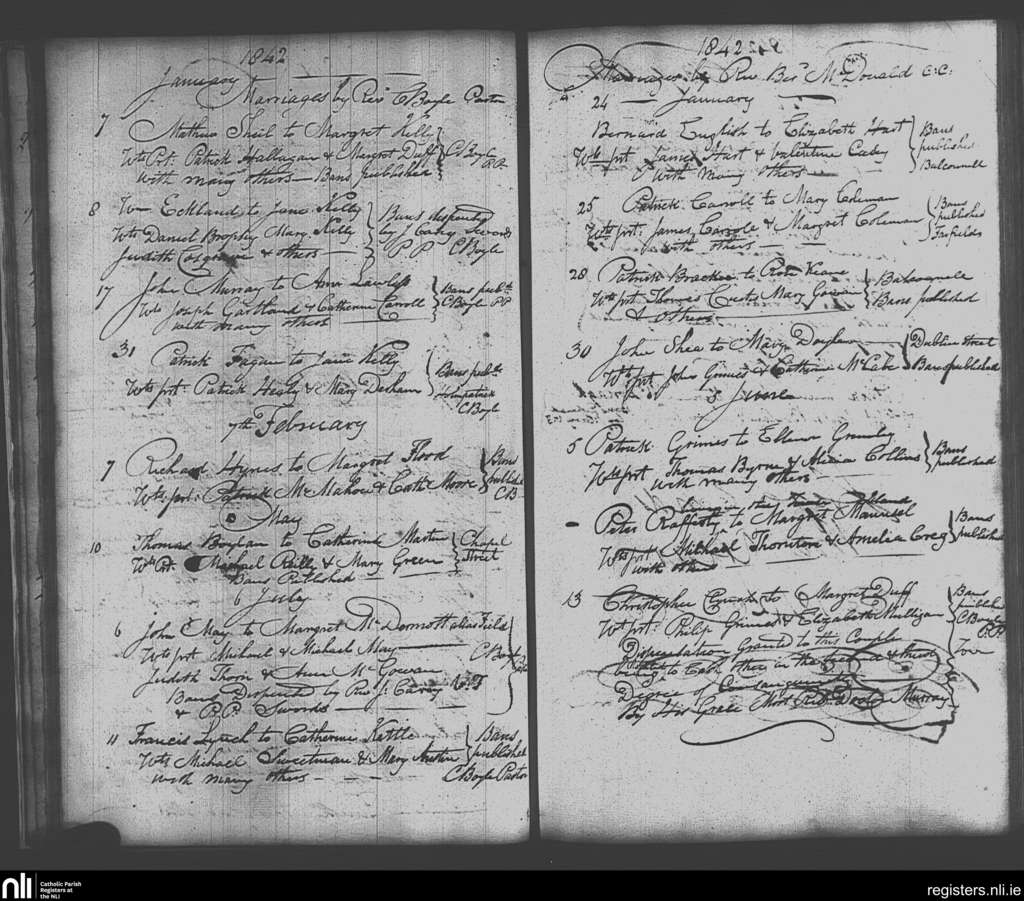 1842
January
Marriages by Rev C Boyle Pastor
7 Mathew Sheil to Margret Kelly
Wts Prt. Patrick Hallagan & Margret Duff C Boyle
with many others — Bans published P.P.
8 Wm Eckland to Jane Kelly
Wts Daniel Brophy Mary Kelly
Judith Cosgrave & others —
Bans
by J Carey Swords
P.P C Boyle
17 John Murray to Ann Lawless
Wts Joseph Gartland & Catherine Carroll
with many others
Bans pubd
C Boyle PP
31 Patrick Fagan to Jane Kelly
Wts prt. Patrick Healy & Mary
Bans pubd
C Boyle
7th February
7 Richard Hynes to Margret Flood
Wts prt. Patrick McMahon & Cathe Moore
Bans
published
CB
May
10 Thomas Boylan to Catherine Martin
Wts Prt. Michael Reilly & Mary Green
Bans Published
Chapel
Street
6 July
6 John May to Margret McDermott alias Field
Wts prt Michael & Michael May
Judith Thorn & Ann McGowan
Bans Dispensed by Rev J. Carey V.F
& P.P. Swords
C Boyle
11 Francis Lynch to Catherine Kettle
Wts Michael Sweetman & Mary
with many others
Bans
published
C Boyle Pastor
1842
Marriages by Rev Berd McDonald C.C.
24 January
Bernard English to Elizabeth Hart
Wts prt James Hart & Valentine Casey
with many others
Bans
published
25 Patrick Carroll to Mary Coleman
Wts prt: James Carrole & Margret Coleman
with others
Bans
published
28 Patrick Bracken to Rose Keane
Wts prt Thomas Curtis Mary
& others
Bans published
30 John Shea to Mary
Wts prt John Grimes & Catherine McCabe
Dublin Street
Bans published
5 June
5 Patrick Grimes to Ellenor
Wts prt Thomas Byrne & Alicia Collins
with many others
Bans
published
Peter Rafferty to Margret
Wts prt Michael Thornton & Amelia Greg
with others
Bans
published
13 Christopher to Margret Duff
Wts prt: Philip Grimes & Elizabeth Mulligan
Dispensation Granted to this Couple
to Each Other in the & third
Degree of Consanguinity
By His Grace Most Revd Doctor Murray
Bans
published
C Boyle
P.P.
nli
Catholic Parish
Registers at
the NLI
registers.nli.ie